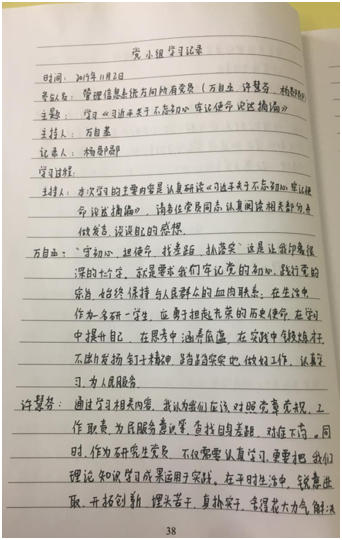 党小组学习记录
时间：2019年11月2日
参加人员：管理信息系统方向所有党员（万自立、许慧芬、杨
主题：学习《习近平关于不忘初心牢记使命论述摘编》
主持人：万自
记录人：杨
学习过程：
主持人：本次学习的主要内容是认真研读《习近平关于不忘初心牢记使
命论述摘编》，请各位党员同志认真阅读相关部分，并
做发言，谈谈自己的感想。
万自：“守初心、担使命、找差距、抓落实”这是让我印象很
深的十二个字，就是要求我们牢记党的初心，践行党的
宗旨，始终保持与人民群众的血肉联系；在生活中，
作为名研一学生，应勇于担起光荣的历史使命，在学习
中提升自己，在思考中涵养底蕴，在实践中锻炼才干，
不断发扬钉子精神，踏踏实实地做好工作，认真学
习，为人民服务。
许慧芬：通过学习相关内容，我认为我们应该对照党章党规、工
作职责、为民服务意识等，查找自身差距，对症下药。同
时，作为研究生党员，不仅需要认真学习，更要把我们
理论知识学习成果运用于实践。在平时生活中，锐意进
取、开拓创新、埋头苦干、真抓实干，舍得花大力气解决
38